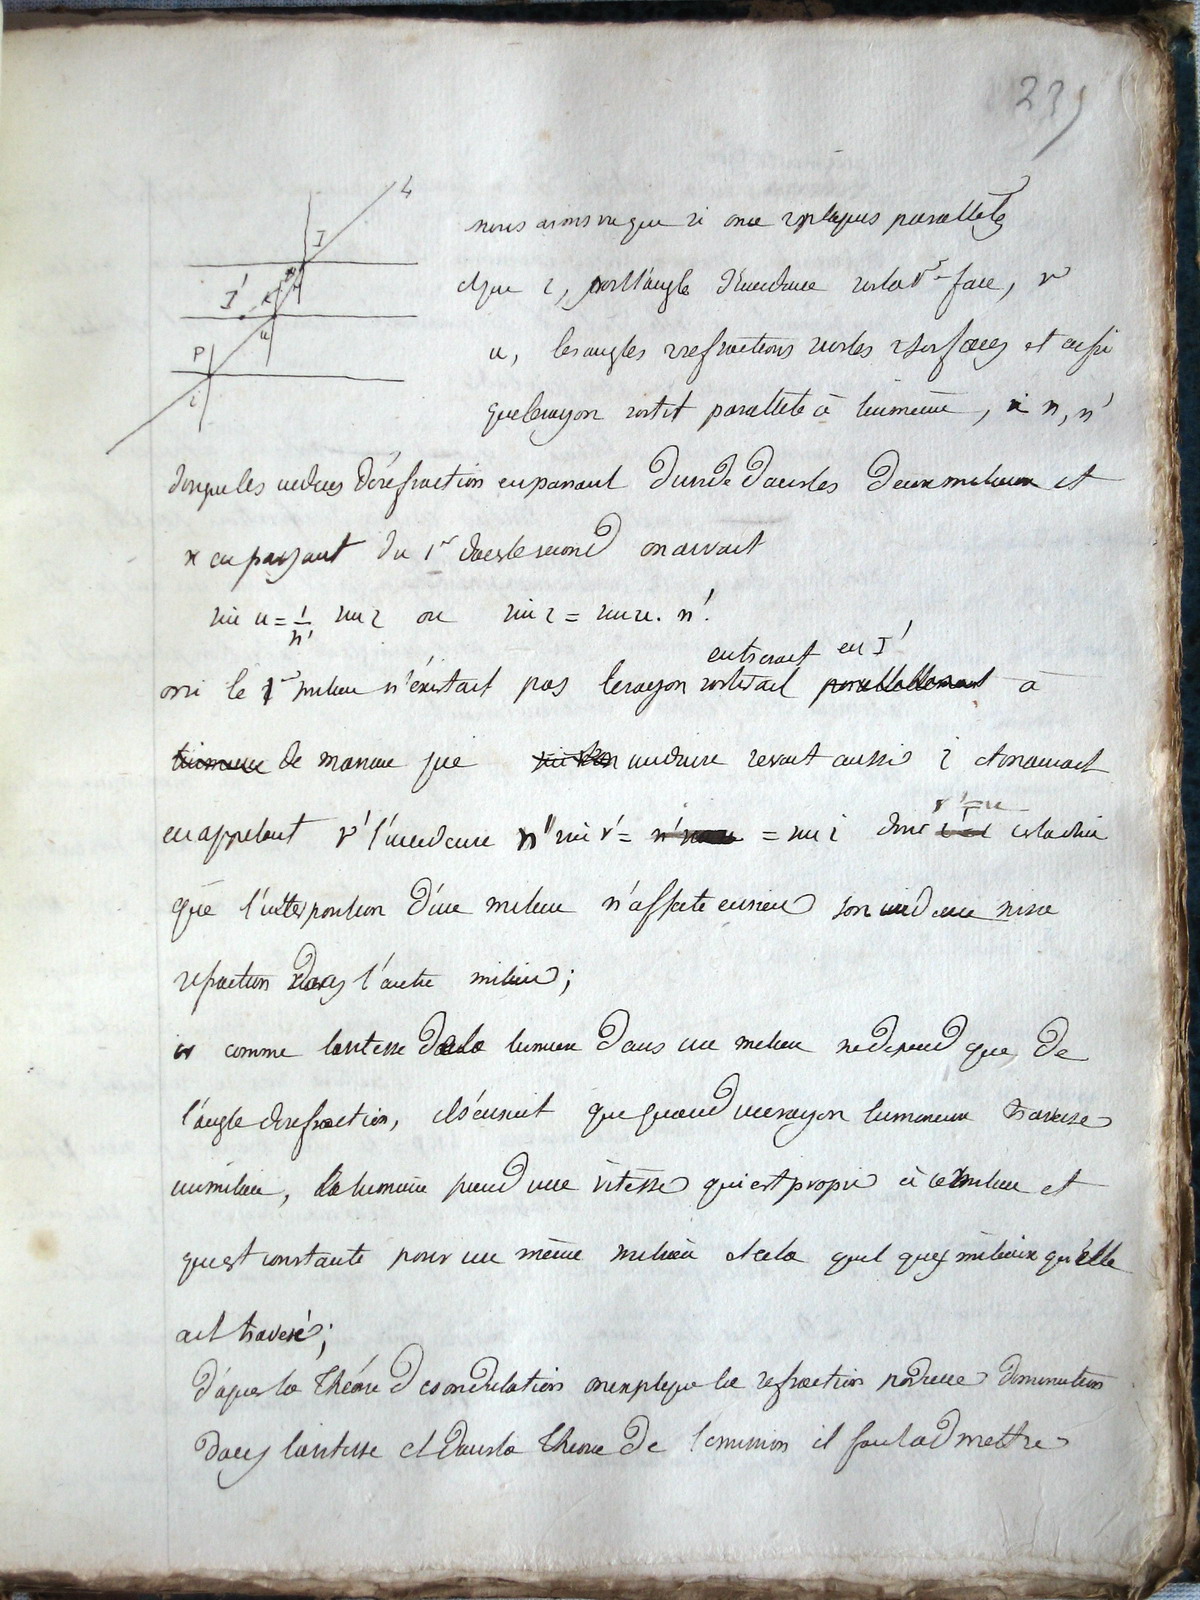 239
nous avons vu que si on a 2 plaques paralleles
et que i, soit l'angle d'incidence sur la 1re face, r
u, les angles refractions sur les surfaces et enfin
que le rayon sortit parallele à lui meme, n, n'
designe les indices de refraction en passant du vide dans les deux milieux et
x en passant du 1er dans le second on avait
sin u = 1/n' sin i ou sin i = sin u. n'.
entrerait en I'
or si le 1er milieu n'éxistait pas le rayon sortirait parallellement à
lui meme de maniere que incidence serait aussi i et on aurait
r' = u
en appelant r' l'incidence n' sin r' = = sin i donc est a dire
que l'interposition d'un milieu n'affecte en rien son incidence ni sa
refraction dans l'autre milieu;
or comme la vitesse de la lumiere dans un milieu ne depend que de
l'angle de refraction, il s'ensuit que quand un rayon lumineux traverse
un milieu, la lumière prend une vitesse qui est propre à ce milieu et
qui est constante pour un même milieu et cela quel que milieux qu'elle
ait traversé;
d'après la théorie des ondulations on explique la refraction par une diminution
dans la vitesse et dans la theorie de l'emission il faut admettre